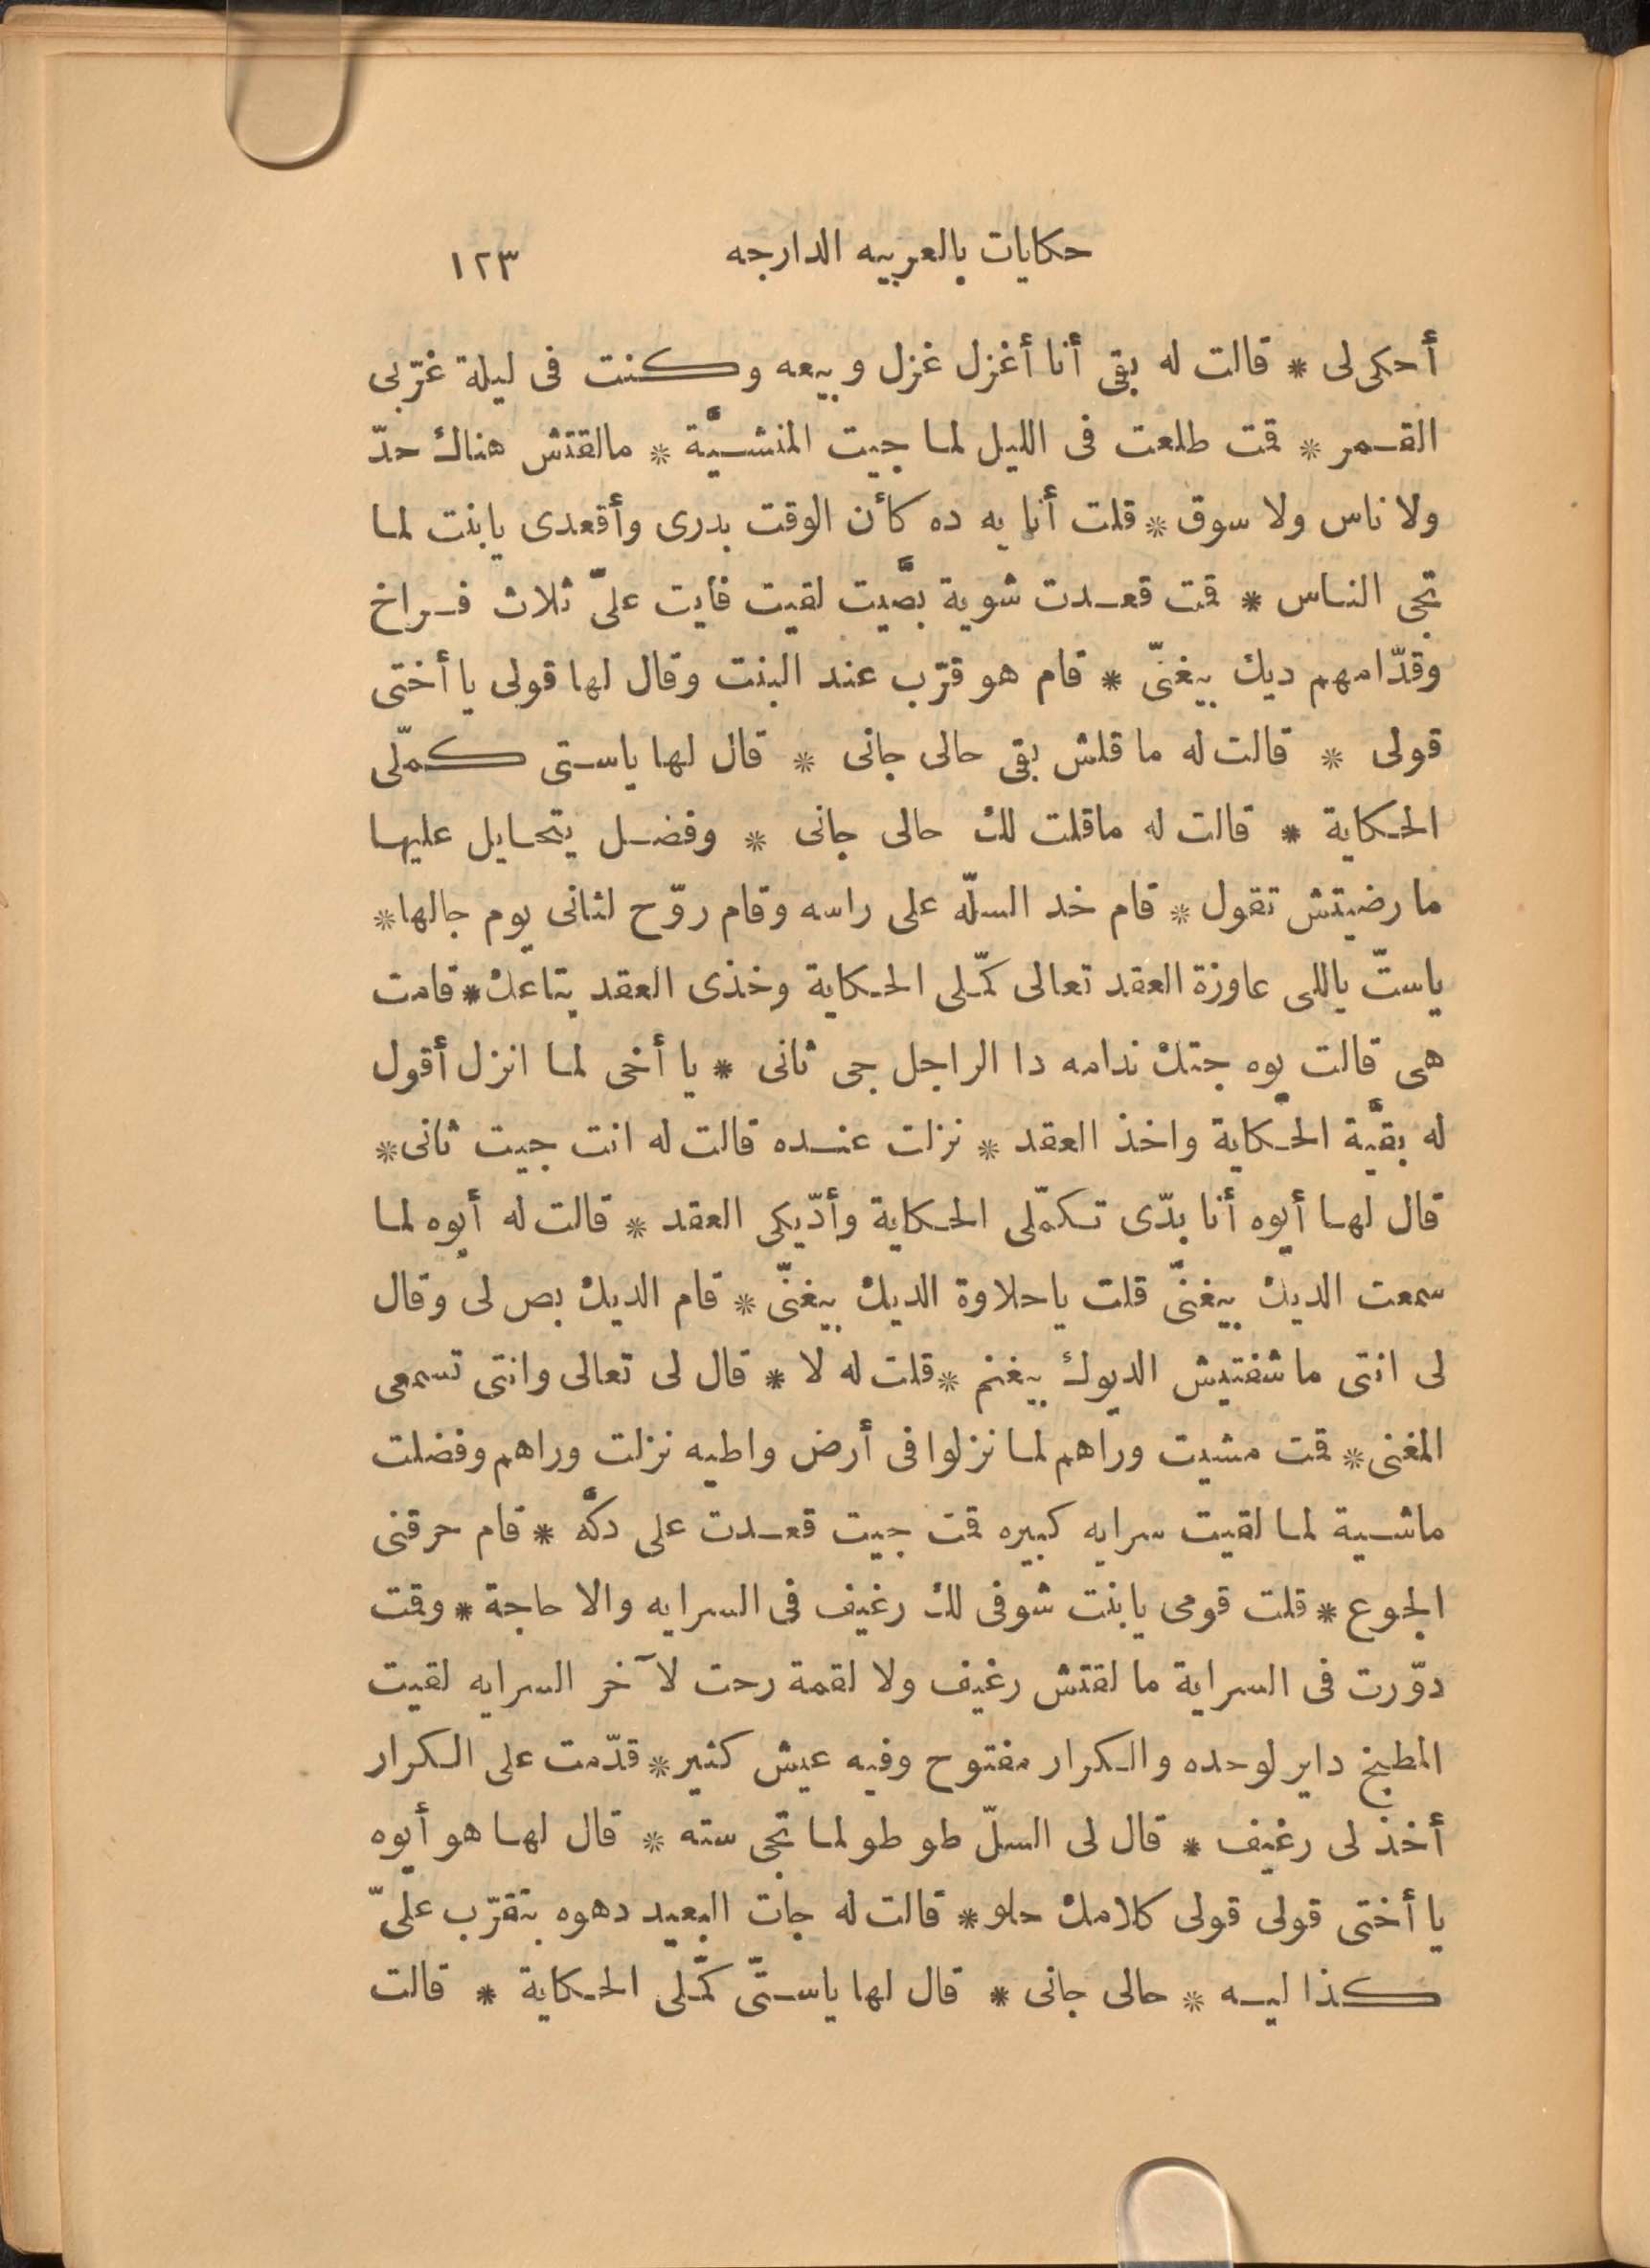 حكايات بالعربيه الدارجه ١٢٣
أحكى لى * قالت له بقى أنا أغزل غزل وبيعه وكنت فى ليلة غرّبى
القمر * قمت طلعت فى الليل لما جيت المنشيَّة * مالقتش هناك حدّ
ولا ناس ولا سوق * قلت أنا يه ده كأن الوقت بدرى وأقعدى يابنت لما
تجى الناس * قمت قعدت شوية بصَّيت لقيت فايت علىّ ثلاث فراخ
وقدّامهم ديك بيغنّى * قام هو قرّب عند البنت وقال لها قولى يا أختى
قولى * قالت له ما قلش بقى حالى جانى * قال لها ياستى كمّلى
الحكاية * قالت له ماقلت لك حالى جانى * وفضل يتحايل عليها
ما رضيتش تقول * قام خد السلّه على راسه وقام روّح لثانى يوم جالها *
ياستّ ياللى عاوزة العقد تعالى كمّلى الحكاية وخذى العقد بتاعك * قامت
هى قالت يوه جتك ندامه دا الراجل جى ثانى * يا أخى لما انزل أقول
له بقيَّة الحكاية واخذ العقد * نزلت عنده قالت له انت جيت ثانى *
قال لها أيوه أنا بدّى تكمّلى الحكاية وأدّيكى العقد * قالت له أيوه لما
سمعت الديك بيغنّى قلت ياحلاوة الديك بيغنّى * قام الديك بص لى وقال
لى انتى ما شفتيش الديوك بيغنم * قلت له لا * قال لى تعالى وانتى تسمعى
المغنى * قمت مشيت وراهم لما نزلوا فى أرض واطيه نزلت وراهم وفضلت
ماشية لما لقيت سرايه كبيره قمت جيت قعدت على دكَّه * قام حرقنى
الجوع * قلت قومى يابنت شوفى لك رغيف فى السرايه والا حاجة * وقمت
دوّرت فى السراية ما لقتش رغيف ولا لقمة رحت لآخر السرايه لقيت
المطبخ داير لوحده والكرار مفتوح وفيه عيش كثير * قدّمت على الكرار
أخذ لى رغيف * قال لى السلّ طو طو لما تجى سته * قال لها هو أيوه
يا أختى قولى قولى كلامك حلو * قالت له جات البعيد دهوه بتقرّب علىّ
كذا ليه * حالى جانى * قال لها ياستّى كمّلى الحكاية * قالت